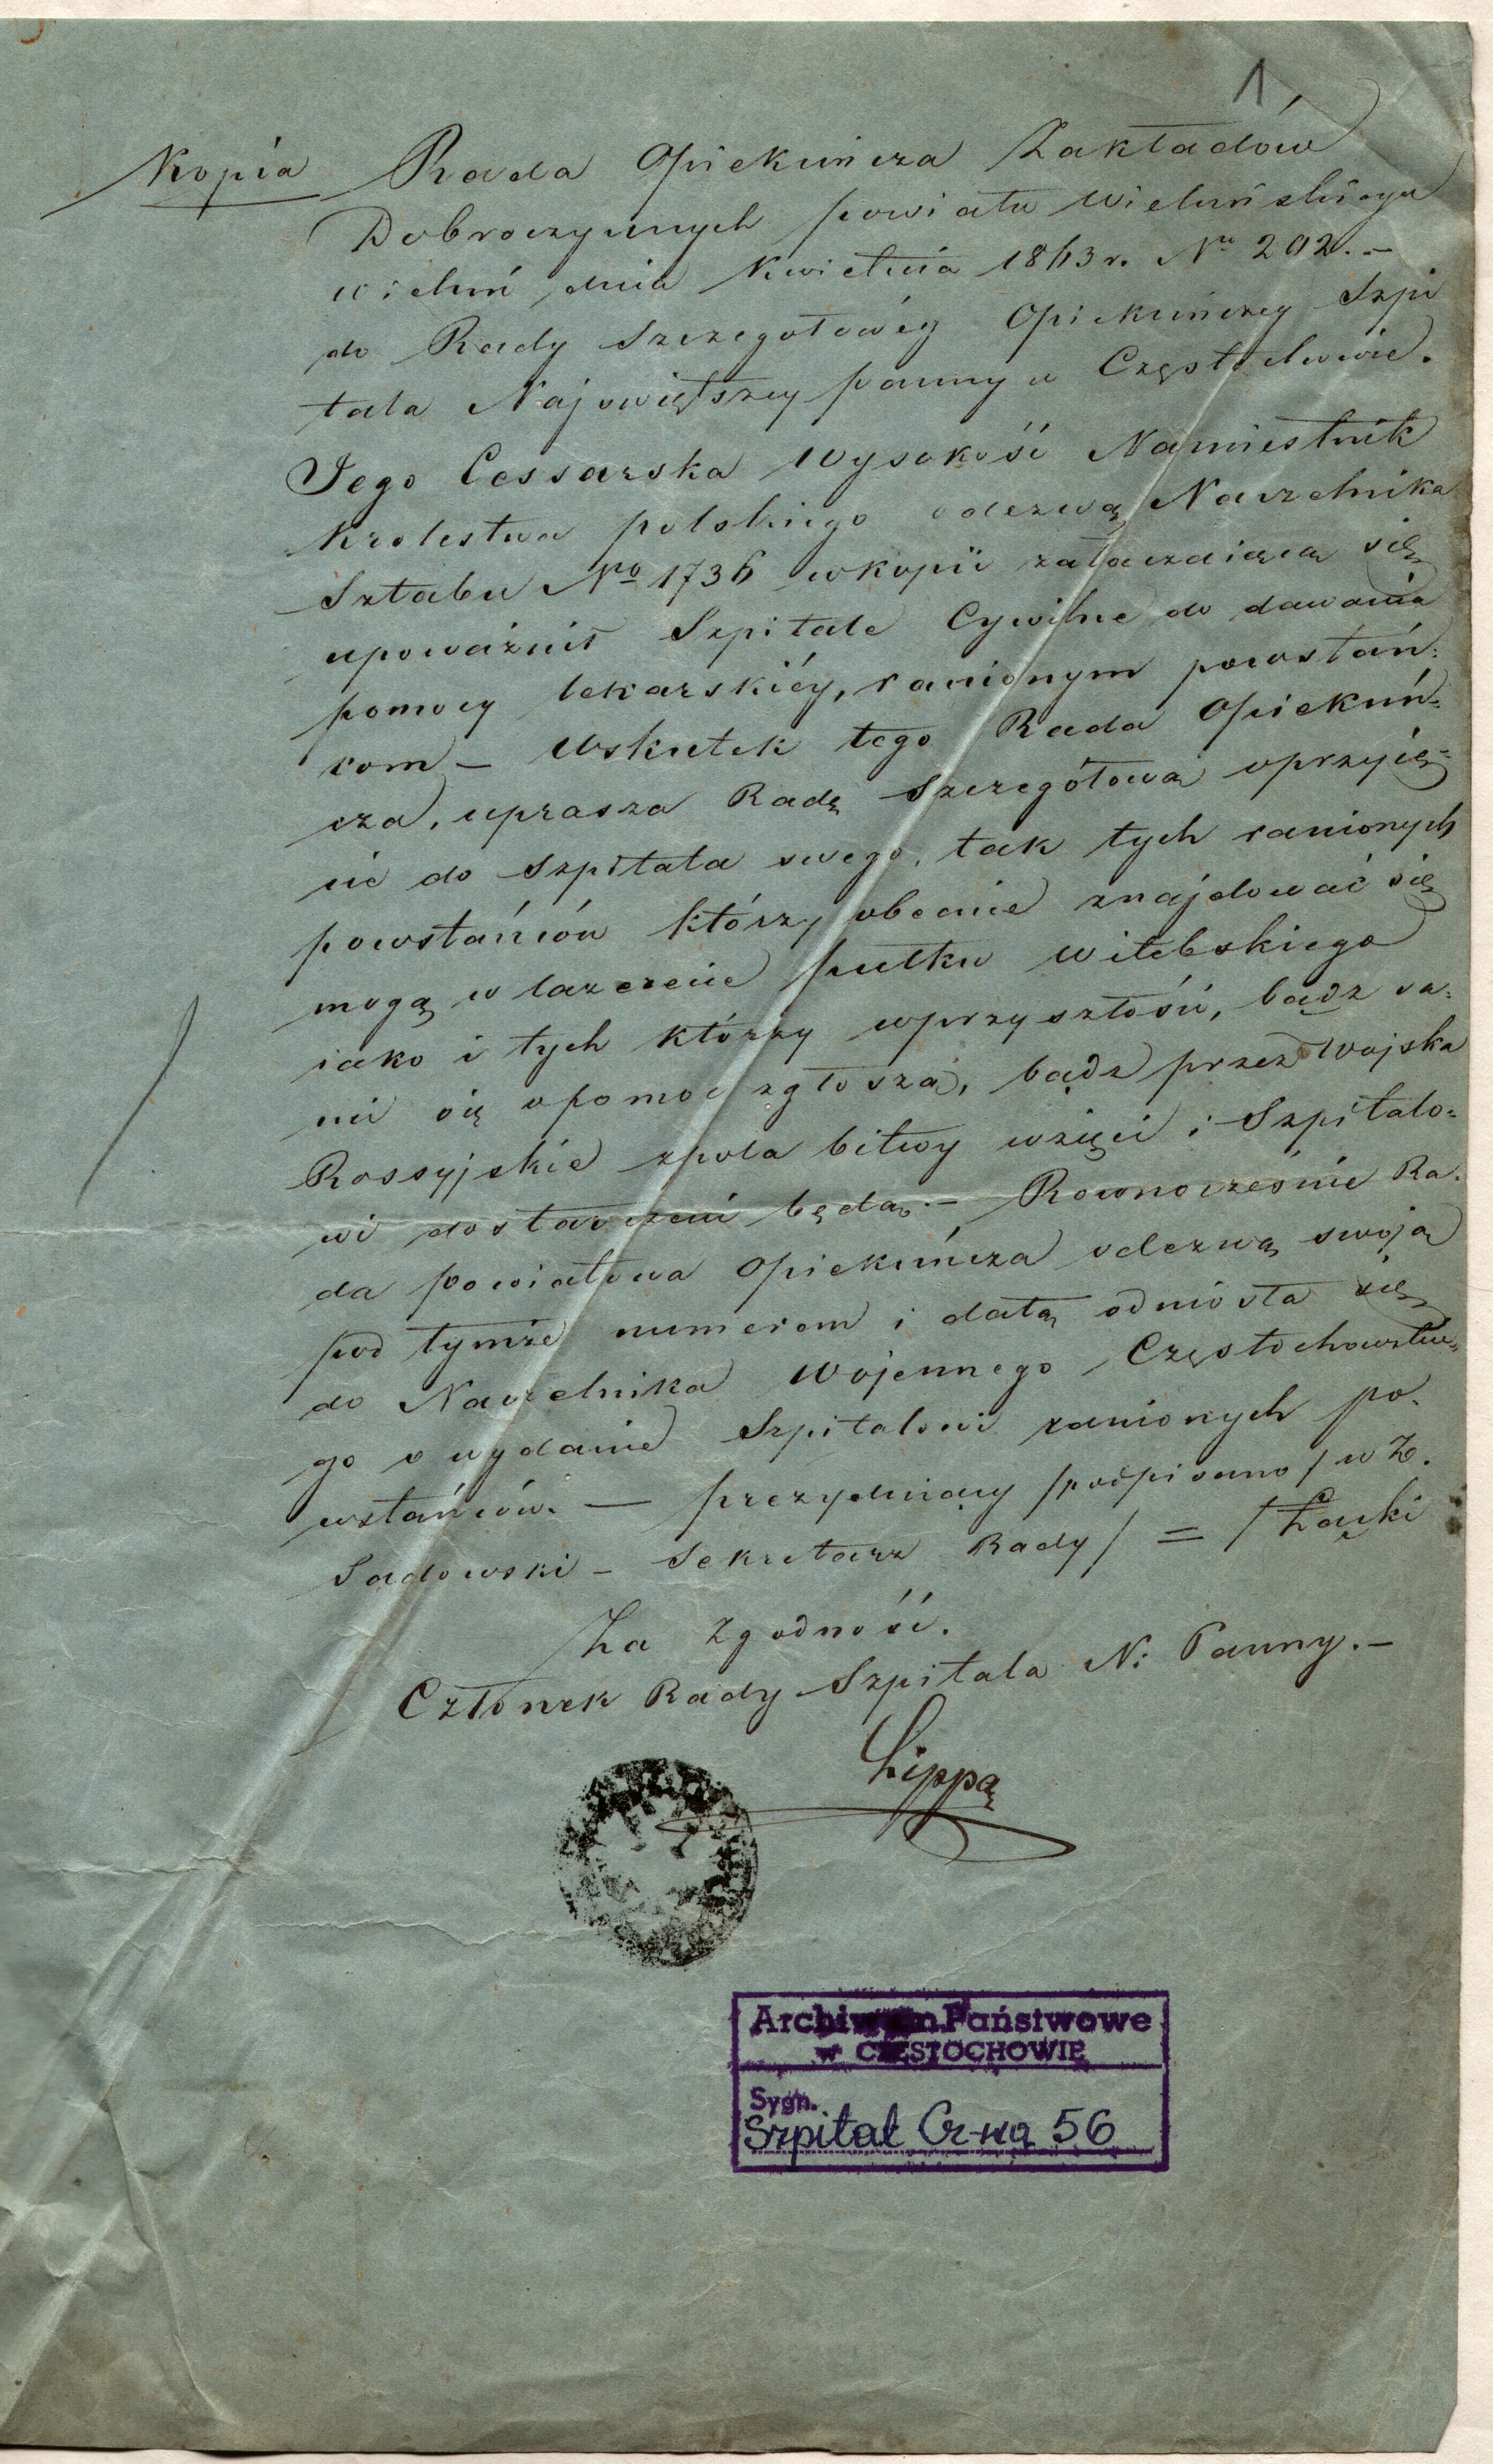 1
Kopia Rada Opiekuńcza Zakładów
Dobroczynnych powiatu Wieluńskiego
Wieluń dnia Kwietnia 1863 r. No 202. –
do Rady Szczegółowéy Opiekuńczey Szpi
tala Najświętszey panny w Częstochowie.
Jego Cessarska Wysokość Namiestnik
Krolestwa polskiego odezwą Naczelnika
Sztabu No 1736 wkopii załączaiącą się
upoważnił Szpitale Cywilne do dawania
pomocy lekarskiéy, ranionym powstań:
com – Wskutek tego Rada Opiekuń=
cza, uprasza Radę Szczegółowa oprzyię=
cie do szpitala swego, tak tych ranionych
powstańców którzy obecnie znajdować się
mogą w lazerecie pułku Witebskiego
iako i tych którzy wprzyszłości, bądz sa:
mi się opomoc zgłoszą, bądz przez Wojska
Rossyjskie zpola bitwy wzięci i Szpitalo=
wi dostarczeni będą. – Rownocześnie Ra.
da powiatowa Opiekuńcza odezwą swoją
pod tymże numerem i datą odniosła się
do Naczelnika Wojennego Częstochowskie=
go o wydanie Szpitalowi ranionych po.
wstańców. — prezydniący /podpisano/ w Z.
Sadowski – Sekretarz Rady / = / Łącki
Za Zgodność.
Członek Rady Szpitala N: Panny. –
Lippa
Archiwum Państwowe
w CZĘSTOCHOWIE
Sygn.
Szpital Cz-wa 56